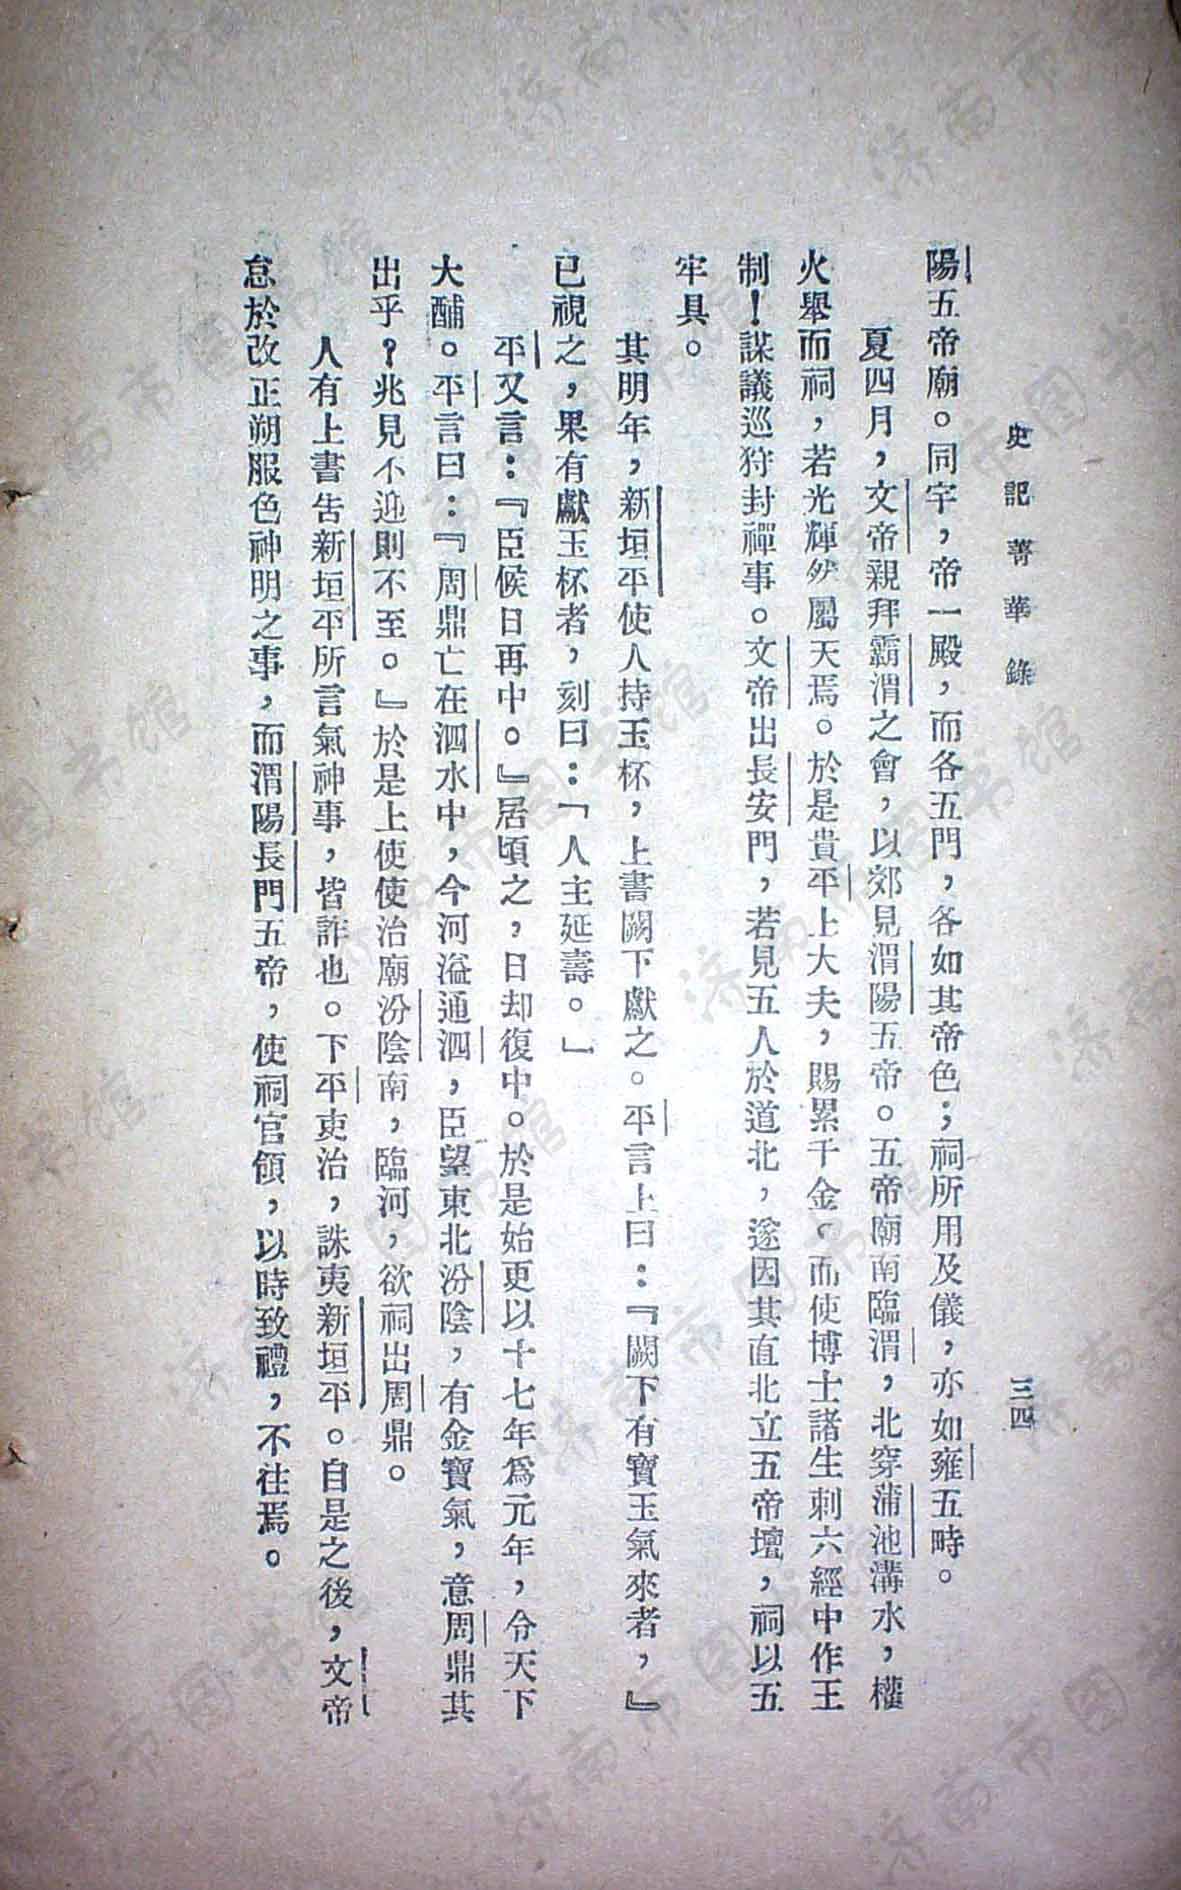 史記菁華錄
三四
陽五帝廟。同宇，帝一殿，而各五門，各如其帝色；祠所用及儀，亦如雍五畤。
夏四月，文帝親拜霸渭之會，以郊見渭陽五帝。五帝廟南臨渭，北穿蒲池溝水，權
火舉而祠，若光輝然屬天焉。於是貴平上大夫，賜累千金。而使博士諸生刺六經中作王
制！謀議巡狩封禪事。文帝出長安門，若見五人於道北，遂因其直北立五帝壇，祠以五
牢具。
其明年，新垣平使人持玉杯，上書闕下獻之。平言上曰：『闕下有寶玉氣來者，』
已視之，果有獻玉杯者，刻曰：「人主延壽。」
平又言：『臣候日再中。』居頃之，日却復中。於是始更以十七年爲元年，令天下
大酺。平言曰：『周鼎亡在泗水中，今河溢通泗，臣望東北汾陰，有金寶氣，意周鼎其
出乎？兆見不迎則不至。』於是上使使治廟汾陰南，臨河，欲祠出周鼎。
人有上書告新垣平所言氣神事，皆詐也。下平吏治，誅夷新垣平。自是之後，文帝
怠於改正朔服色神明之事，而渭陽長門五帝，使祠官領，以時致禮，不往焉。
济南市图书馆